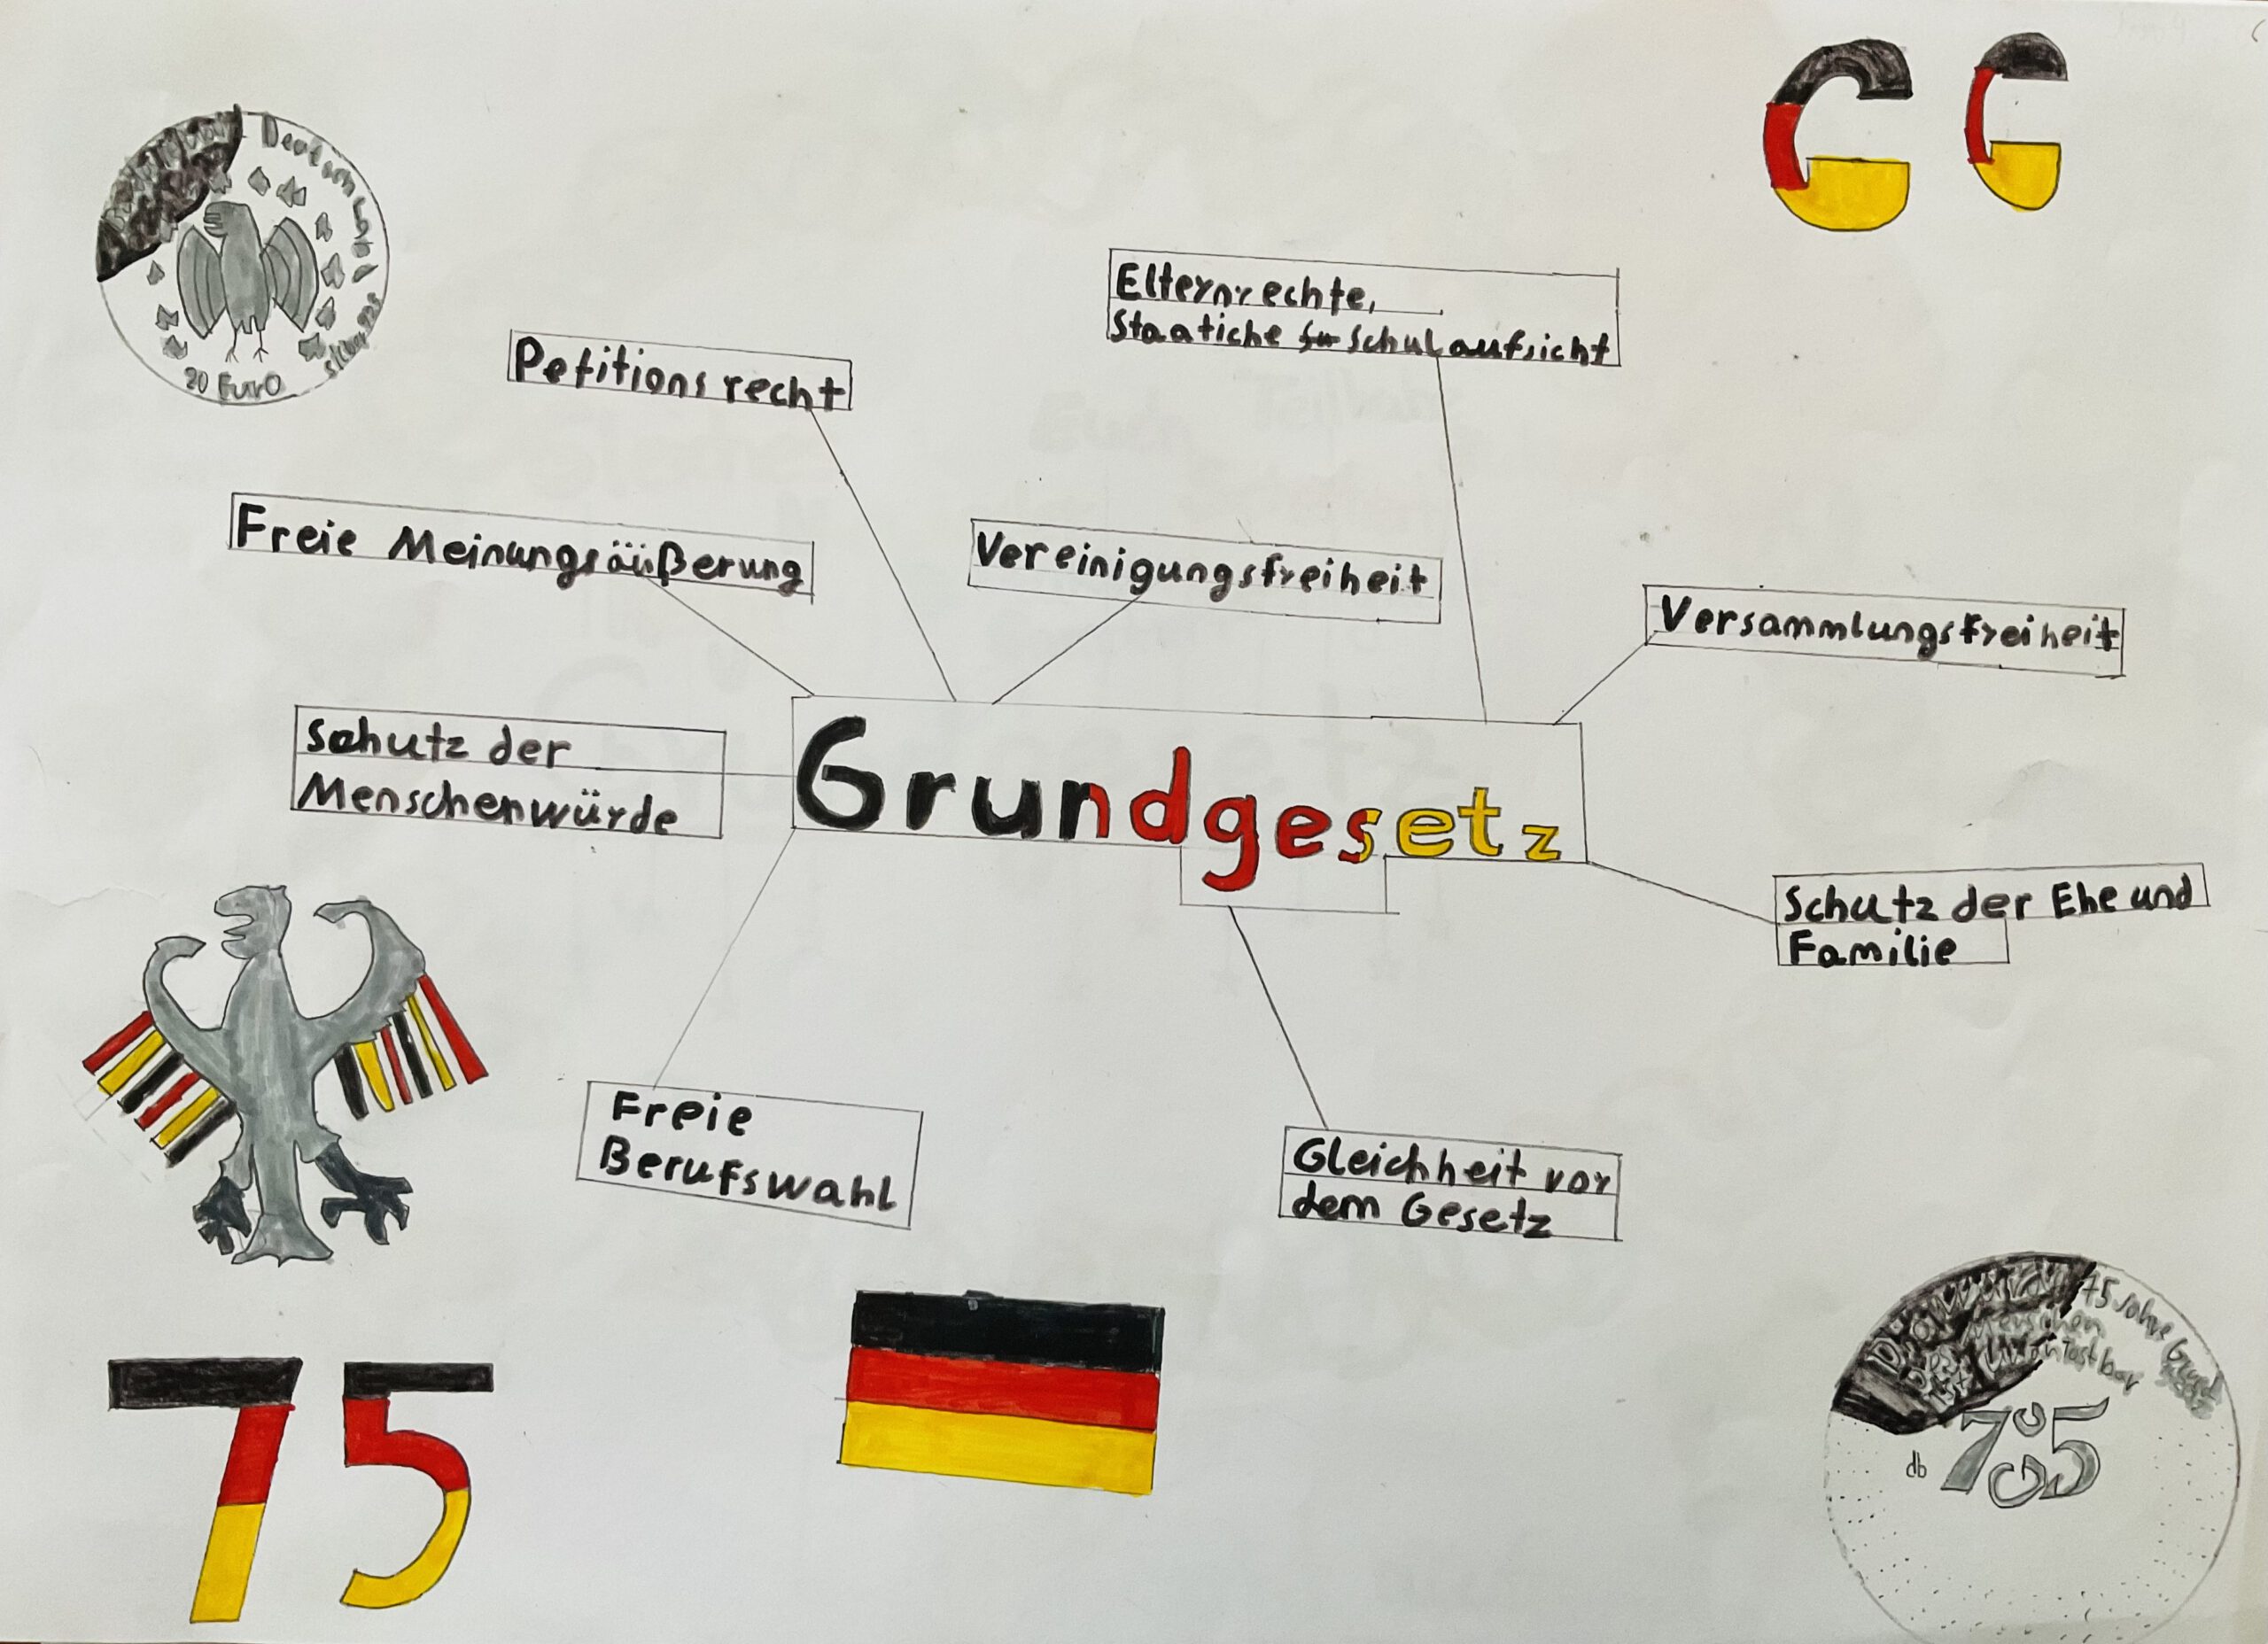 G G
Deutschland
20 Euro
Elternrechte,
Staatiche Schulaufsicht
Petitionsrecht
Freie Meinungsäüßerung
Vereinigungsfreiheit
Versammlungsfreiheit
Schutz der
Menschenwürde
Grundgesetz
Schutz der Ehe und
Familie
Freie
Berufswahl
Gleichheit vor
dem Gesetz
75
75 Jahre Grund
Menschen
Unantastbar
db
75